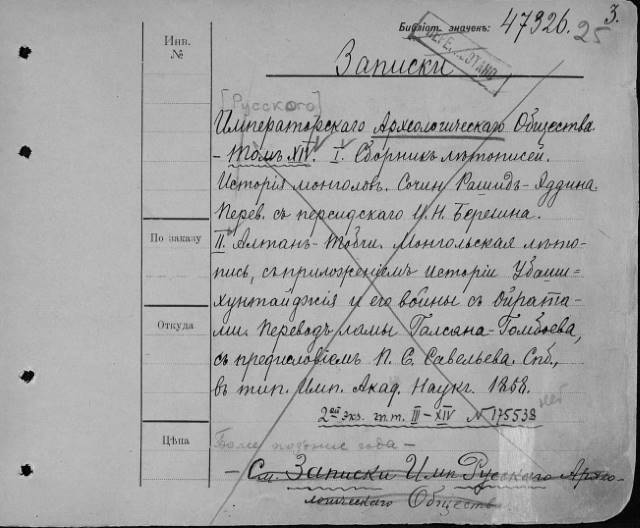 Библіот. значекъ: 47326. 25 3.
ПЕРЕЧТАНО
Инв.
№
Записки
[Русского]
Императорскаго Археологическаго Общества
- Томъ XIV. I. Сборникъ лѣтописей.
Исторія монголовъ. Сочин. Рашидъ-Эддина.
Перев. съ персидскаго И. Н. Березина.
По заказу
II. Алтанъ-Тобчи. Монгольская лѣто-
пись, съ приложеніемъ исторіи Убаши-
хунтайджія и его войны съ Ойрата-
Откуда
ми. Переводъ ламы Галсана-Гомбоева,
съ предисловіемъ П. С. Савельева. Спб.,
въ тип. Имп. Акад. Наукъ. 1858.
2ой экз. т.т. III-XIV № 175538 нет
Цѣна
Более поздние года -
- См. Записки Имп. Русскаго Архео-
логическаго Обществ